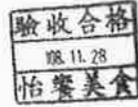 驗收合格
108.11.28
怡饗美食